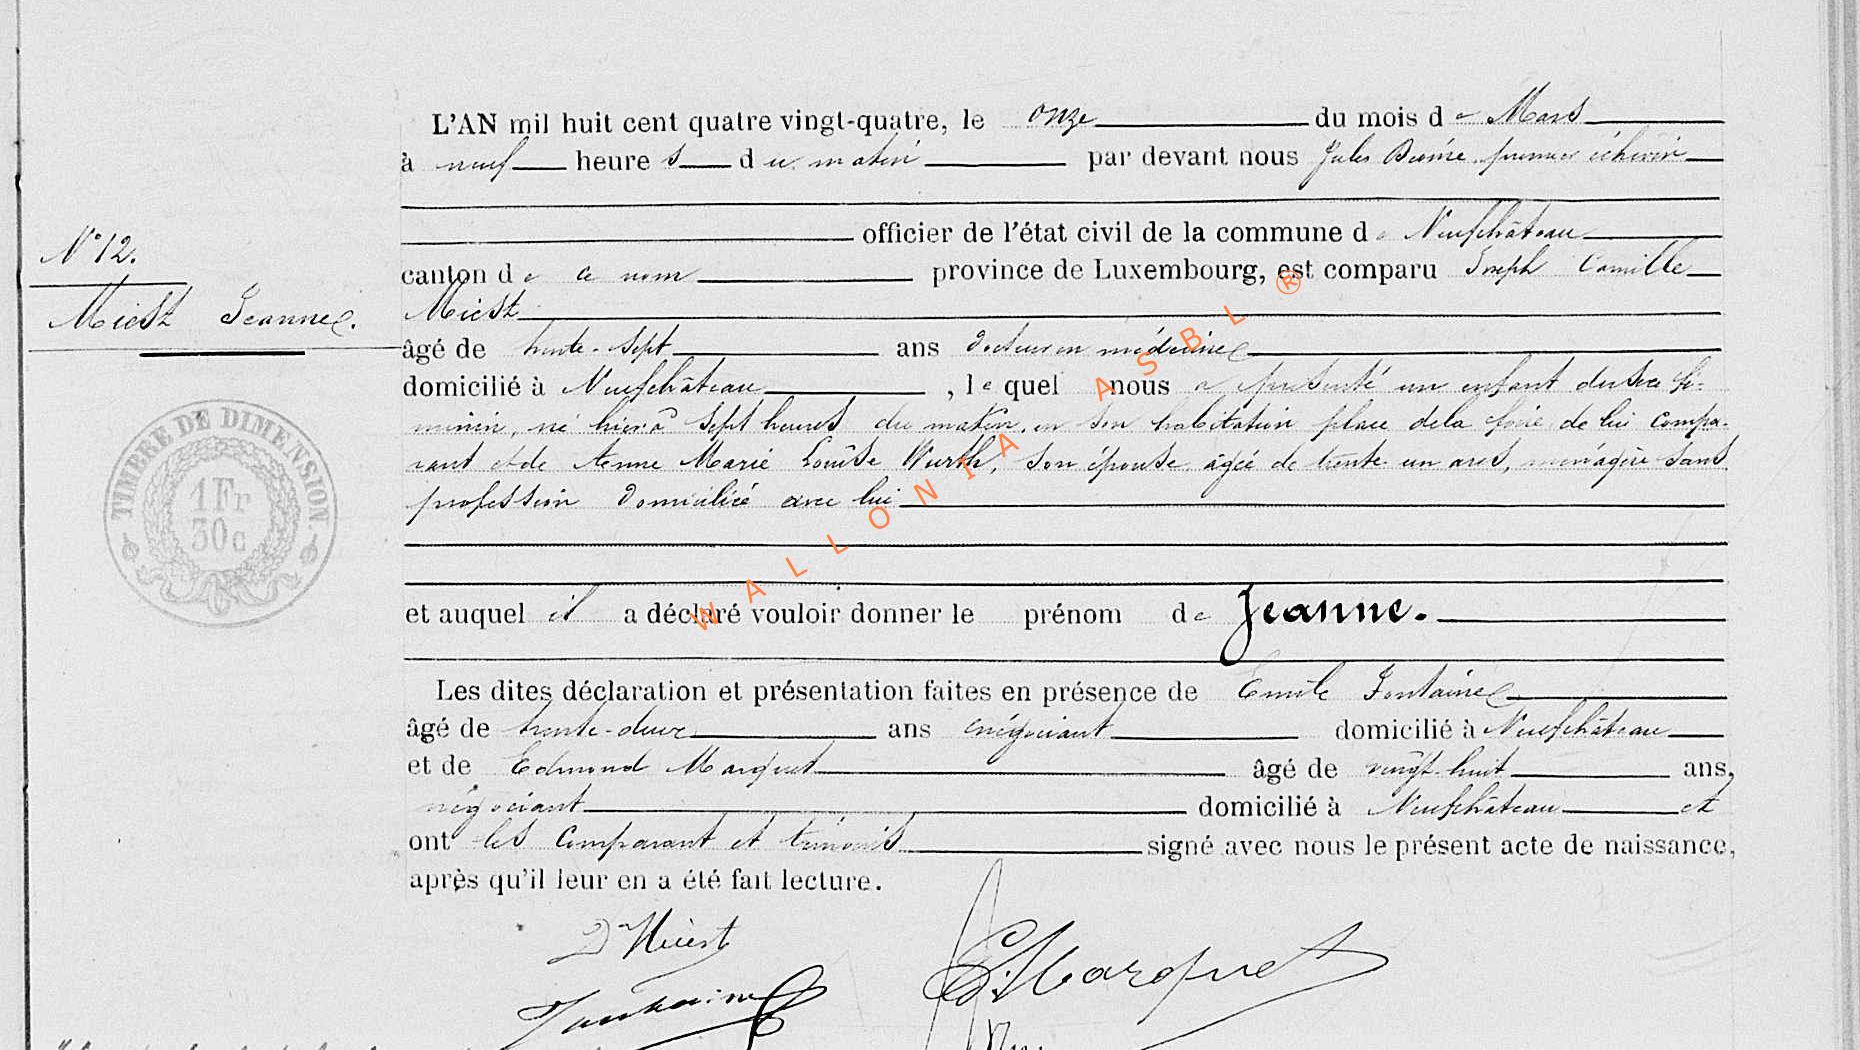 L'AN mil huit cent quatre vingt-quatre, le onze du mois de Mars
à neuf heures du matin par devant nous Jules premier échevin
officier de l'état civil de la commune de Neufchâteau
N° 12.
canton de ce nom province de Luxembourg, est comparu Joseph Camille
Miest Jeanne.
Miest
âgé de trente-sept ans docteur en médecine
domicilié à Neufchâteau, lequel nous a présenté un enfant du sexe fé-
minin, né hier à sept heures du matin, en son habitation place de la foire de lui compa-
rant et de Anne Marie Louise Wurth, son épouse âgée de trente un ans, ménagère sans
profession domiciliée avec lui
TIMBRE DE DIMENSION.
1 Fr
30c
et auquel il a déclaré vouloir donner le prénom de Jeanne.
Les dites déclaration et présentation faites en présence de Emile Fontaine
âgé de trente-deux ans négociant domicilié à Neufchâteau
et de Edmond Marquet âgé de vingt-huit ans,
négociant domicilié à Neufchâteau et
ont les comparant et témoins signé avec nous le présent acte de naissance,
après qu'il leur en a été fait lecture.
Dr Miest
E. Marquet
Fontaine
WALLONIA ASBL ®